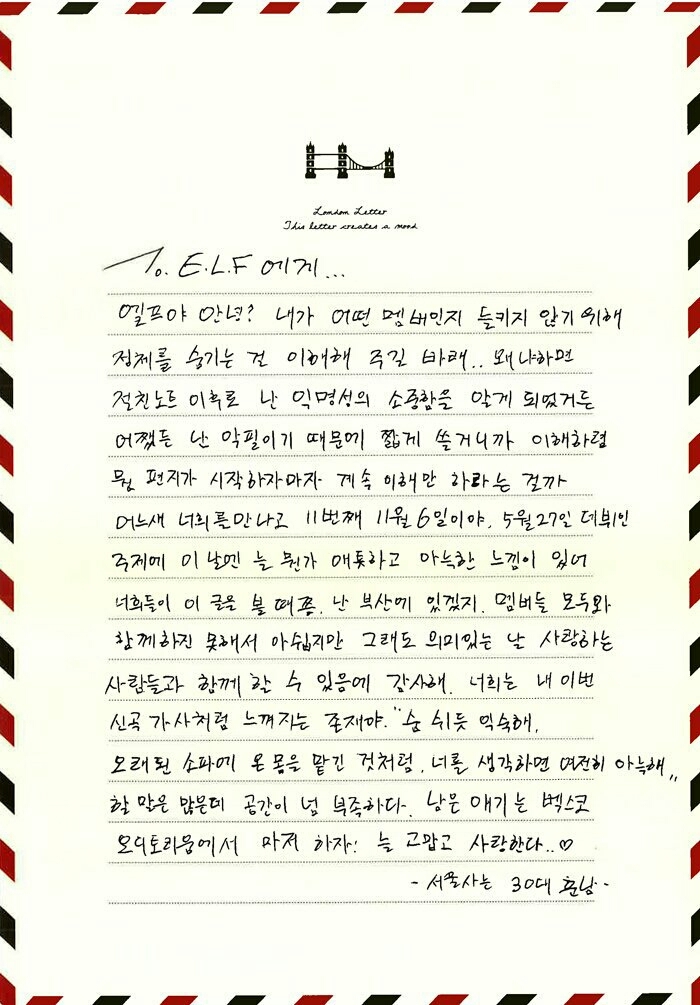 London Letter
This letter creates a mood
To. E.L.F 에게...
엘프야 안녕? 내가 어떤 멤버인지 들키지 않기 위해
정체를 숨기는 건 이해해 주길 바래.. 왜냐하면
절친노트 이후로 난 익명성의 소중함을 알게 되었거든
어쨌든 난 악필이기 때문에 짧게 쓸거니까 이해하렴
뭔 편지가 시작하자마자 계속 이해만 하라는 걸까
어느새 너희를만나고 11번째 11월 6일이야. 5월27일 데뷔인
주제에 이 날엔 늘 뭔가 애틋하고 아늑한 느낌이 있어
너희들이 이 글을 볼 때쯤. 난 부산에 있겠지. 멤버들 모두와
함께하진 못해서 아쉽지만 그래도 의미있는 날 사랑하는
사람들과 함께 할 수 있음에 감사해. 너희는 내 이번
신곡 가사처럼 느껴지는 존재야. "숨 쉬듯 익숙해,
오래된 소파에 온 몸을 맡긴 것처럼, 너를 생각하면 여전히 아늑해"
할 말은 많은데 공간이 넘 부족하다. 남은 얘기는 벡스코
오디토리움에서 마저 하자! 늘 고맙고 사랑한다..♡
- 서울사는 30대 훈남 -